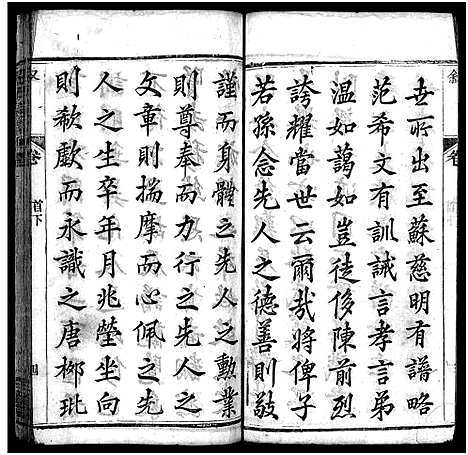 世所出至蘇慈明有譜略
范希文有訓誡言孝言弟
温如藹如豈徒侈陳前烈
誇耀當世云爾哉將俾子
若孫念先人之德善則敬
謹而身體之先人之勳業
則尊奉而力行之先人之
文章則揣摩而心佩之先
人之生卒年月兆塋坐向
則欷歔而永識之唐柳玭
卷
首下
四